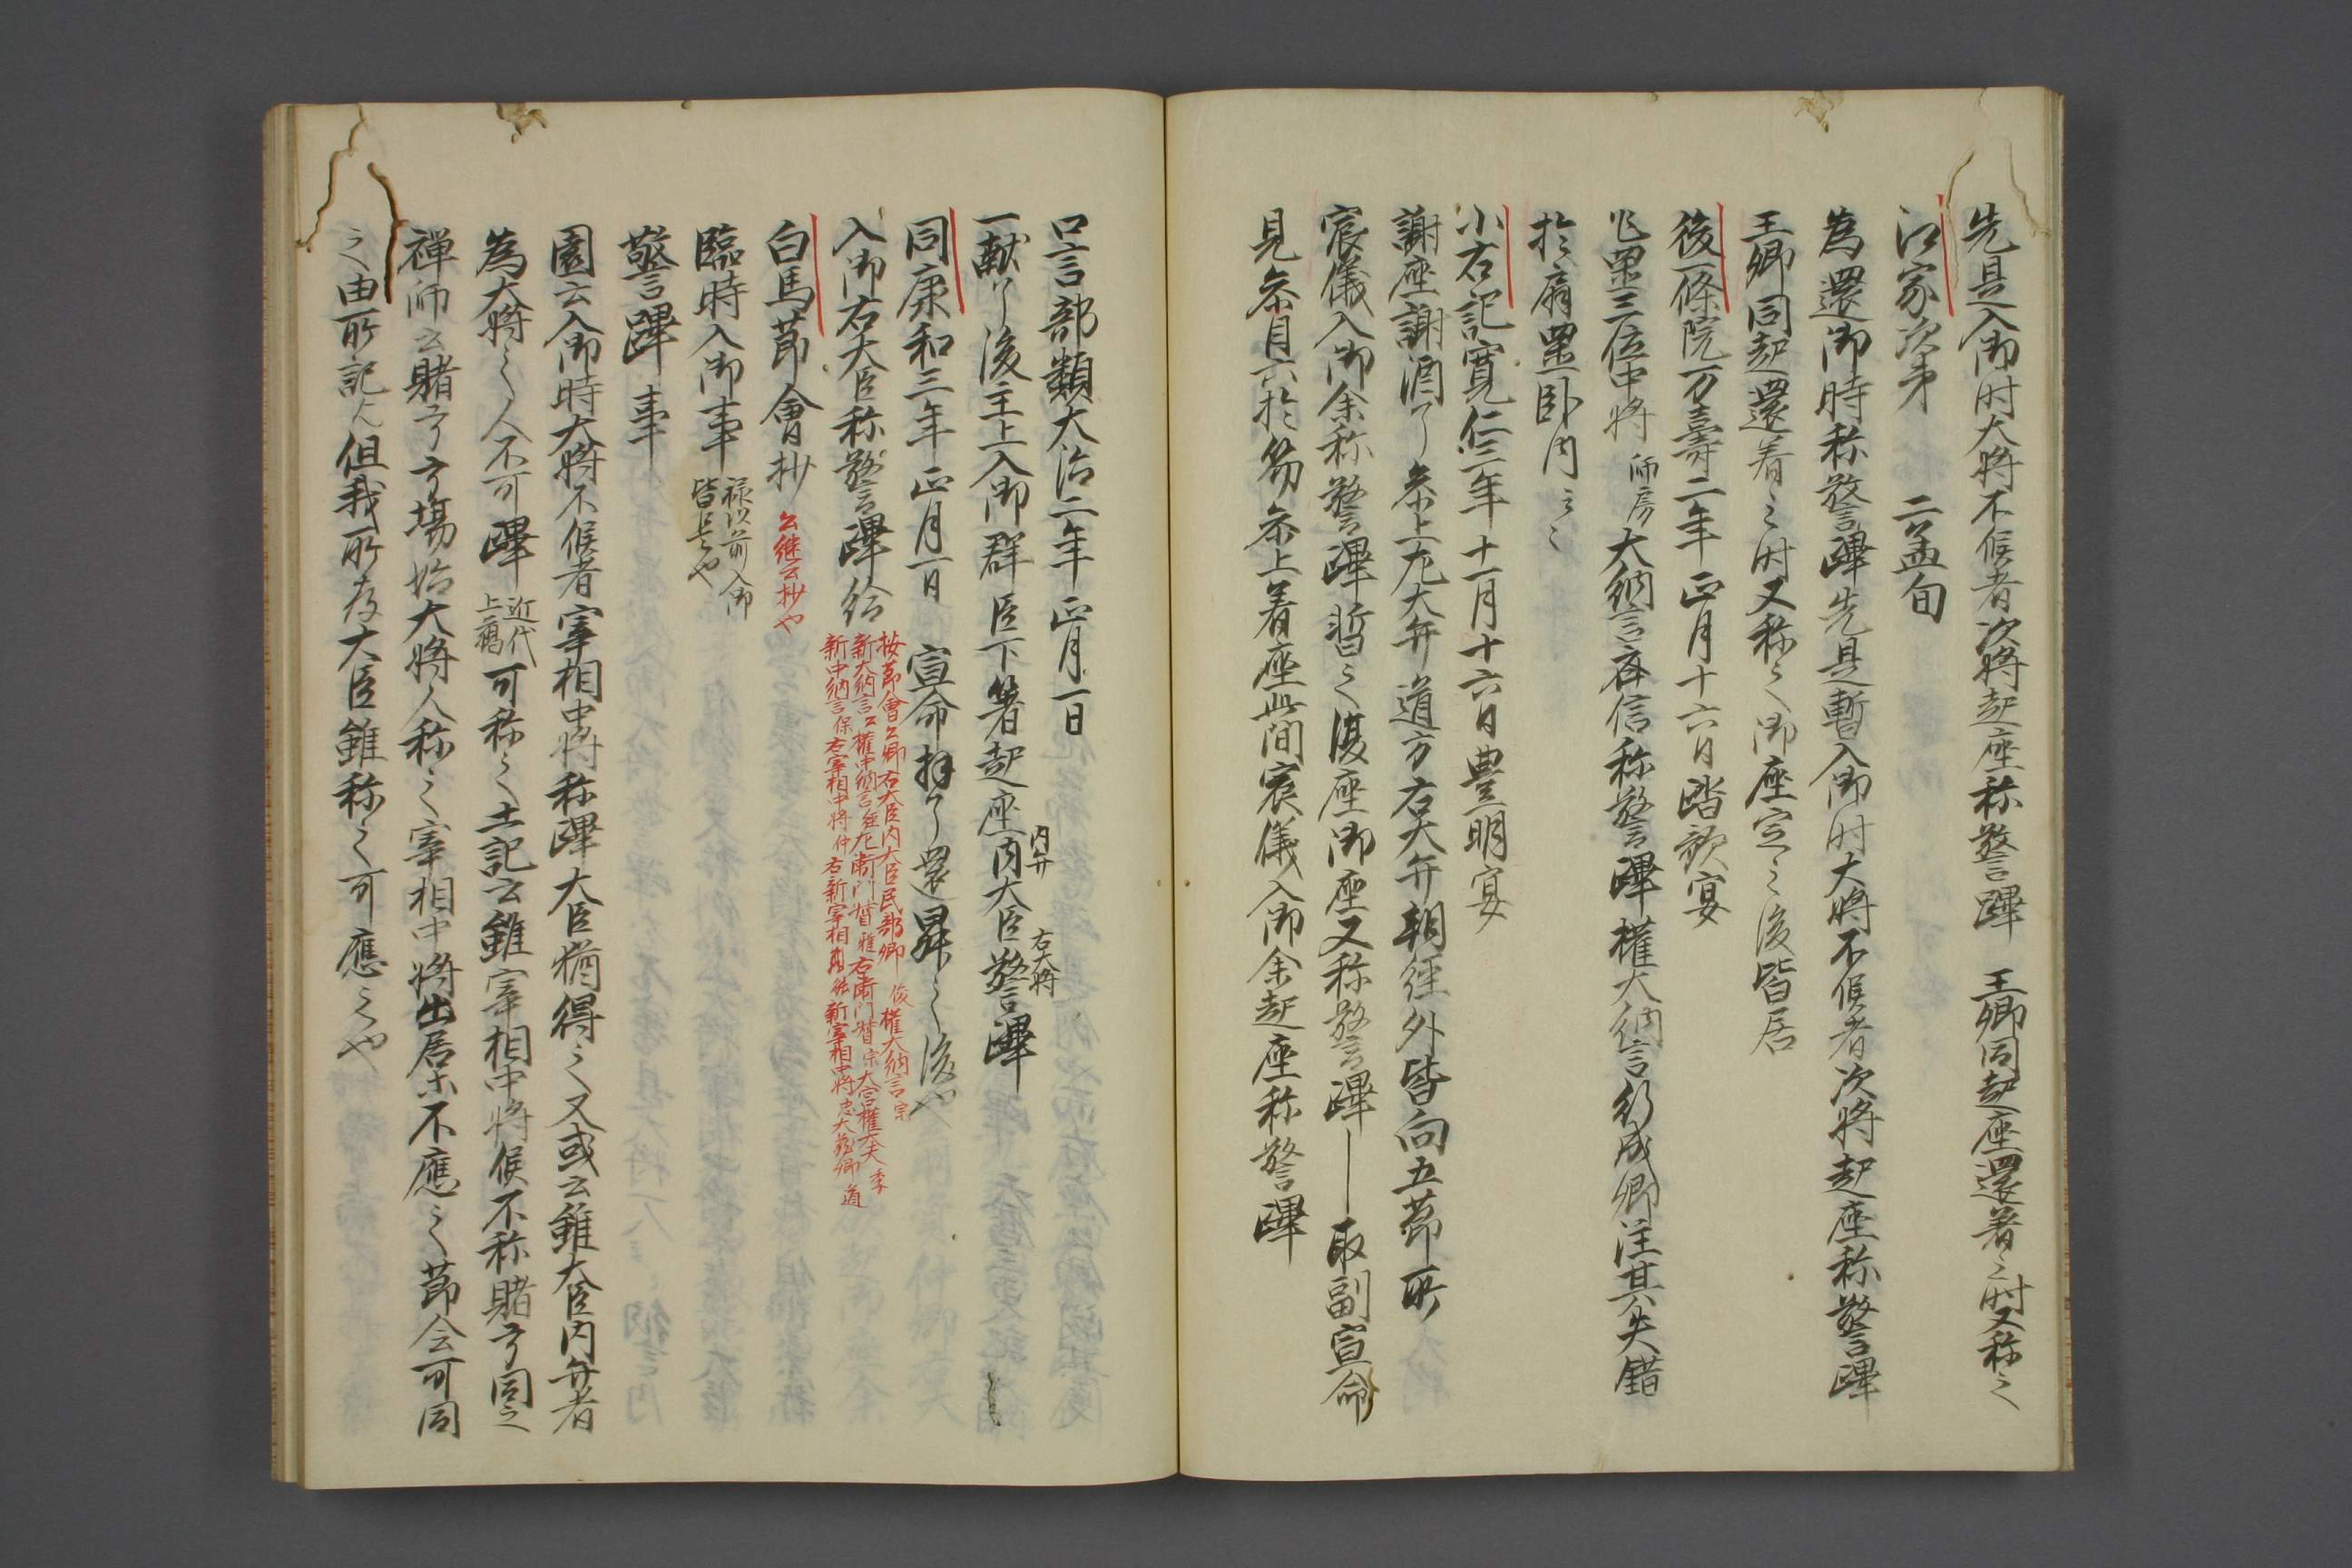 先是入御时大将不候者次将起座称警蹕　王卿同起座還著之时又称之
江家次第　二孟旬
為還御時称警蹕先是暫入御时大将不候者次将起座称警蹕
王卿同起還着之时又称之御座定之後皆居
後一條院万壽二年正月十六日踏歌宴
三位中将師房大納言斉信称警蹕權大納言行成卿注其失錯
於扇置臥内云々
小右記寛仁三年十一月十六日豊明宴
謝座謝酒了参上左大弁道方右大弁朝経外皆向五節所
宸儀入御余称警蹕暫之復座御座又称警蹕―取副宣命
見参目六於笏参上着座此間宸儀入御余起座称警蹕
口言部類大治二年正月一日
一献了後主上入御群臣下箸起座内大臣警蹕
内弁
右大将
同康和三年正月一日　宣命拜了還昇之後也
入御右大臣称警蹕給
按節會公卿右大臣内大臣民部卿俊權大納言宗
新大納言公權中納言経左衛門督雅右衛門督宗大宮權大夫季
新中納言保右宰相中将仲右新宰相顕新宰相中将忠大蔵卿道
白馬節會抄　公継公抄也
臨時入御事
禄以前入御
皆是也
警蹕事
園云入御時大将不候者宰相中将称蹕大臣猶得之又或云雖大臣内弁者
為大将之人不可蹕近代上臈可称之土記云雖宰相中将候不称賭弓同之
禅師云賭弓弓場始大将人称之宰相中将出居不應之節会可同
之由所記也但我所存大臣雖称之可應之也